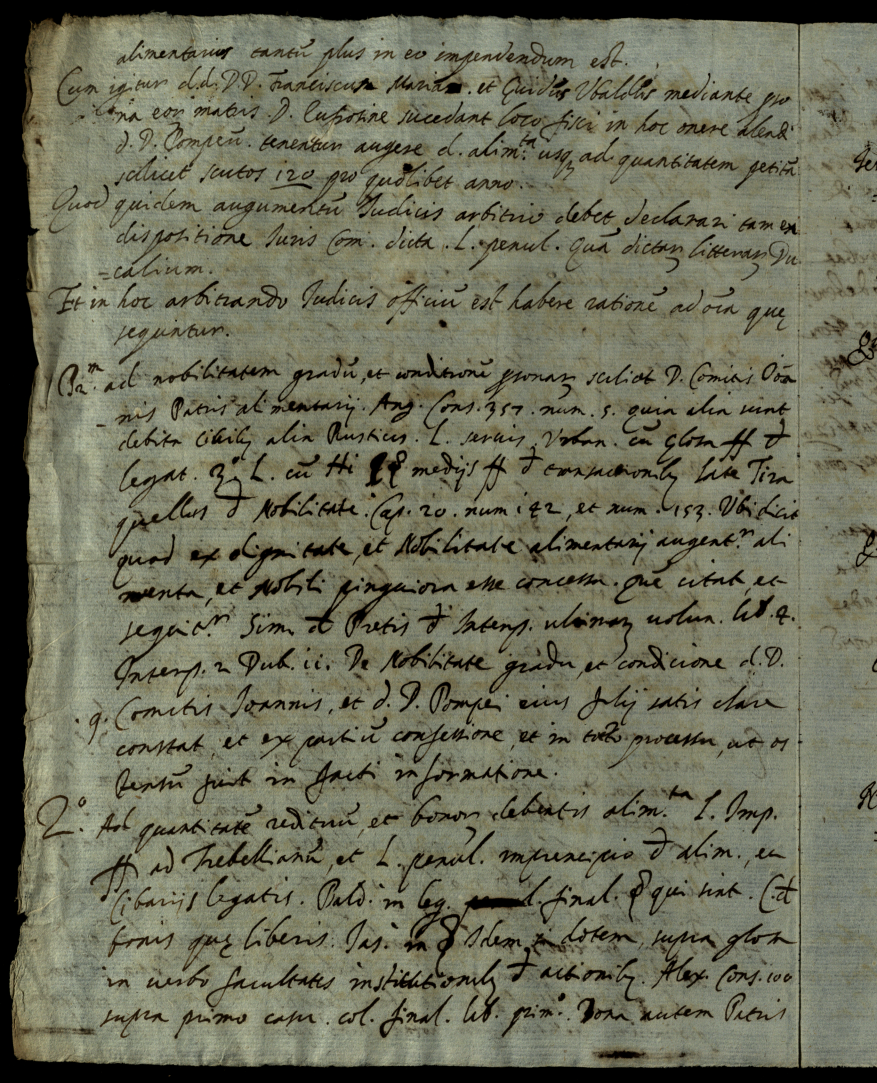 alimentarius tantũ plus in eo impendendum est.
Cum igitur d.d. DD. Franciscus Maria et Guidus Ubaldus mediante pro
pria matris D. sucedant loco fisci in hoc onere alendi
d. D. Pompeũ. tenentur augere d. alim.ta usq ad quantitatem petitã
scilicet scutos 120 pro quolibet anno.
Quod quidem augumentũ Iudicis arbitrio debet declarari tam ex
dispositione Iuris Com. dicta. L. penul. Quã dictar litterar Du
=calium.
Et in hoc arbitrando Iudicis officiũ est habere rationẽ ad oĩa quę
sequuntur.
P.m ad nobilitatem gradũ, et conditionẽ psonar scilicet D. Comitis Ioã
nis Patris alimentarij. Ang. Cons. 357. num. 5. quia alia sunt
debita alia Rusticis. L. seruis Urban. cũ glosa ff đ
legat. 3.º L. cũ Hi § medijs ff đ transactionib late Tira
quellus đ Nobilitate. Cap. 20. num 142, et num. 153. Ubi dicit
quod ex dignitate, et Nobilitate alimentarij augent.r ali
menta, et Nobili pinguiora esse concessa. quẽ citat, et
sequit.r Sim. đ Pretis đ Interp. ultimar uolun. lib. 4.
Interp. 2 Dub. ii. De Nobilitate gradu, et condicione d. D.
. 9. Comitis Ioannis, et d. D. Pompei eius filij satis clare
constat, et ex partiũ confessione, et in toto processu, ut os
tensũ fuit in facti informatione.
2.º Ad quantitatẽ redituũ, et bonor debentis alim.ta L. Imp.
ff ad Trebellianũ, et L. penul. in principio đ alim., et
Cibarijs legatis. Bald. in leg. final. § qui sint. C. đ
bonis quę liberis. Ias. in § Idem dotem, supra glosa
in uerbo facultatis institutionib đ actionib. Alex. Cons. 100
supra primo casu. col. final. lib. prim.º Bona autem Patris